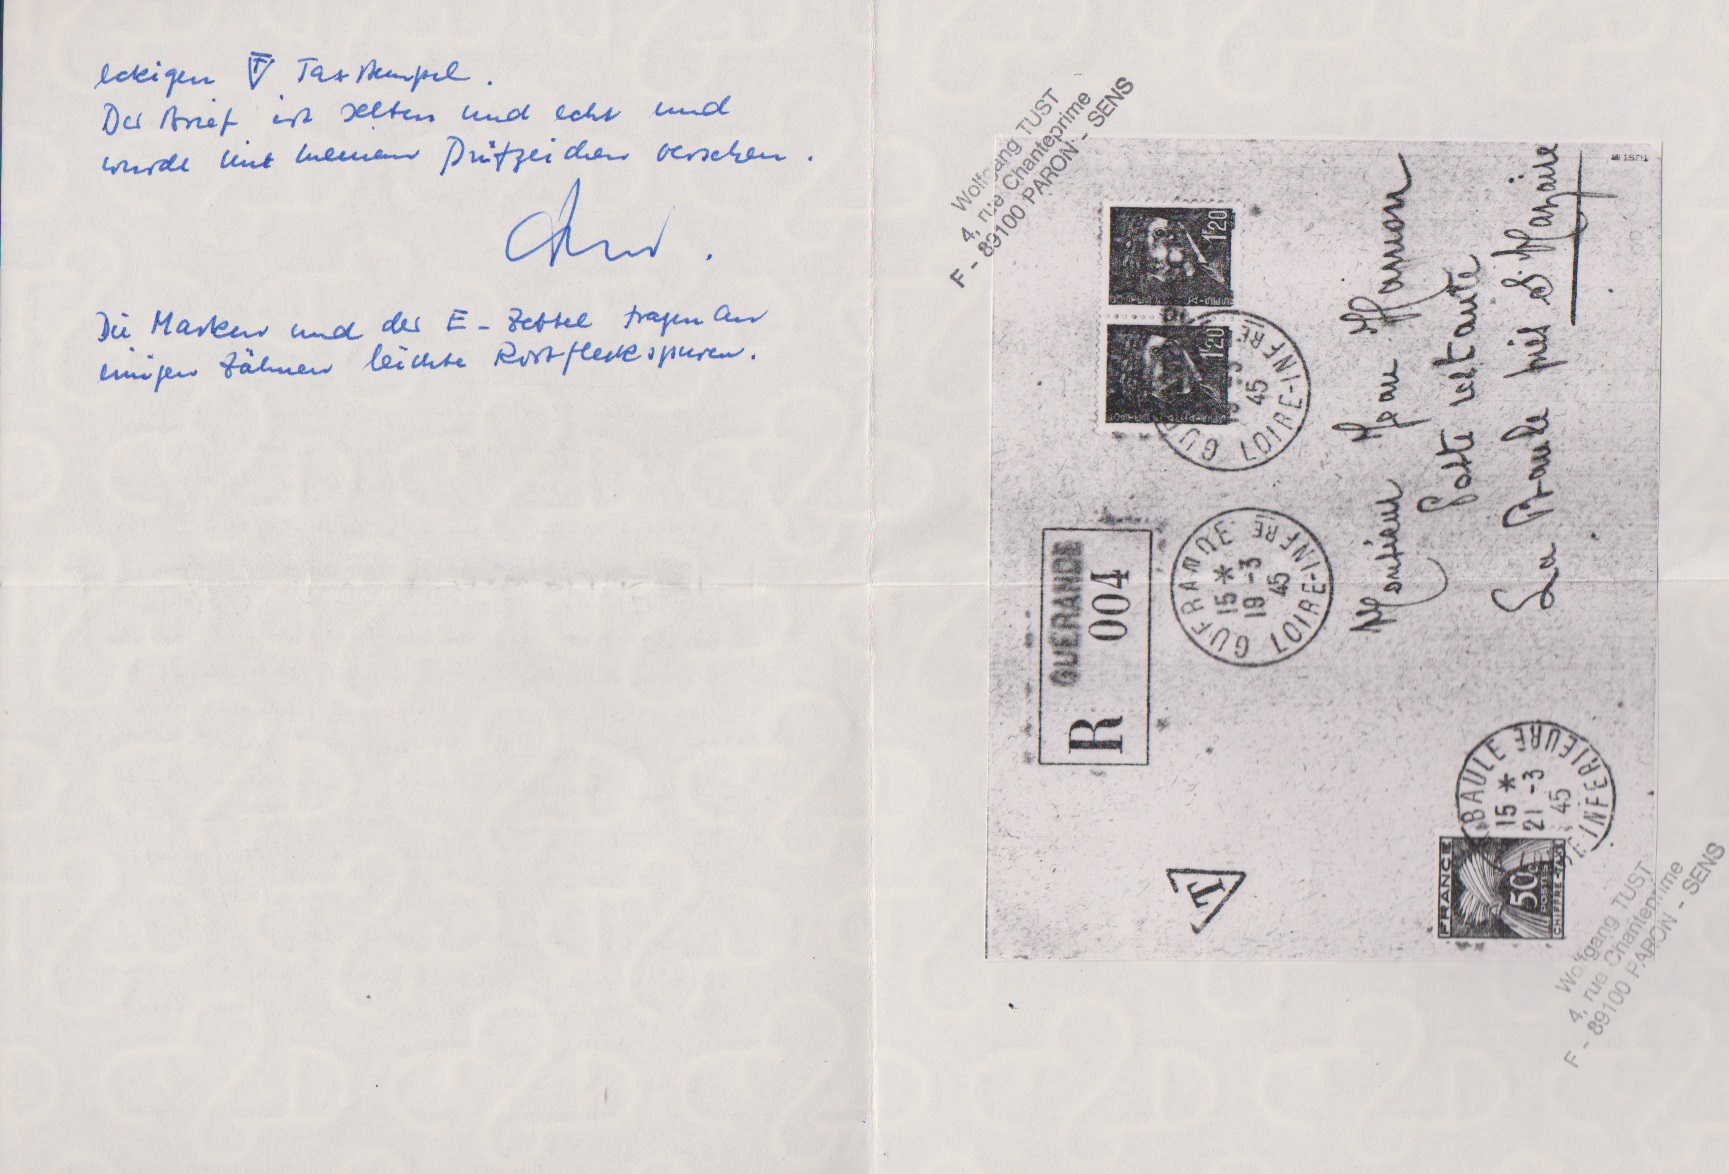 eckigen T Taxstempel.
Der Brief ist selten und echt und
wurde mit meinem Prüfzeichen versehen.
Die Marken und der E-Zettel tragen an
einigen Zähnen leichte Rostfleckspuren.
Wolfgang TUST
4, rue Chanteprime
F - 89100 PARON - SENS
1F20
1F20
GUERANDE
19 -3
45
LOIRE-INFRE
R GUÉRANDE
004
GUERANDE
15 *
19 -3
45
LOIRE-INFRE
Monsieur Jean Hamon
Poste restante
La Baule près St Nazaire
T
BAULE
15 *
21 -3
45
INFERIEURE
FRANCE
50c
POSTES
CHIFFRE-TAXE
Wolfgang TUST
4, rue Chanteprime
F - 89100 PARON - SENS